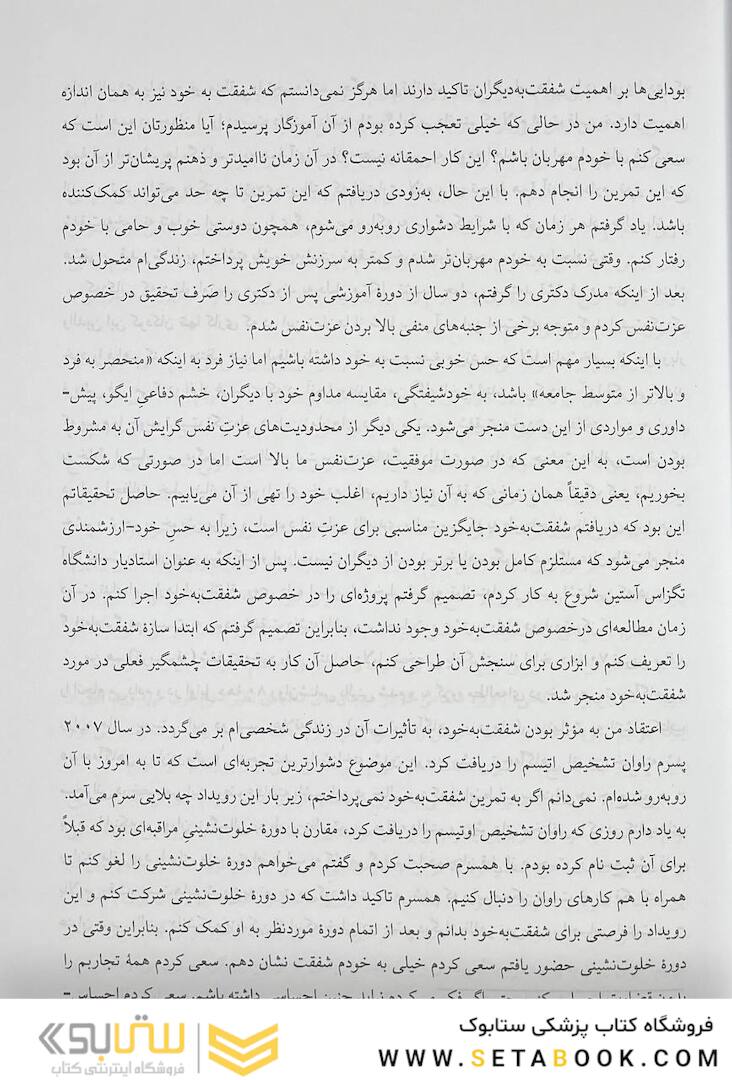 بودایی‌ها بر اهمیت شفقت‌به‌دیگران تاکید دارند اما هرگز نمی‌دانستم که شفقت به خود نیز به همان اندازه
اهمیت دارد. من در حالی که خیلی تعجب کرده بودم از آن آموزگار پرسیدم؛ آیا منظورتان این است که
سعی کنم با خودم مهربان باشم؟ این کار احمقانه نیست؟ در آن زمان ناامیدتر و ذهنم پریشان‌تر از آن بود
که این تمرین را انجام دهم. با این حال، به‌زودی دریافتم که این تمرین تا چه حد می‌تواند کمک‌کننده
باشد. یاد گرفتم هر زمان که با شرایط دشواری روبه‌رو می‌شوم، همچون دوستی خوب و حامی با خودم
رفتار کنم. وقتی نسبت به خودم مهربان‌تر شدم و کمتر به سرزنش خویش پرداختم، زندگی‌ام متحول شد.
بعد از اینکه مدرک دکتری را گرفتم، دو سال از دورهٔ آموزشی پس از دکتری را صرف تحقیق در خصوص
عزت‌نفس کردم و متوجه برخی از جنبه‌های منفی بالا بردن عزت‌نفس شدم.
با اینکه بسیار مهم است که حس خوبی نسبت به خود داشته باشیم اما نیاز فرد به اینکه «منحصر به فرد
و بالاتر از متوسط جامعه» باشد، به خودشیفتگی، مقایسه مداوم خود با دیگران، خشم دفاعیِ ایگو، پیش-
داوری و مواردی از این دست منجر می‌شود. یکی دیگر از محدودیت‌های عزتِ نفس گرایش آن به مشروط
بودن است، به این معنی که در صورت موفقیت، عزت‌نفس ما بالا است اما در صورتی که شکست
بخوریم، یعنی دقیقاً همان زمانی که به آن نیاز داریم، اغلب خود را تهی از آن می‌یابیم. حاصل تحقیقاتم
این بود که دریافتم شفقت‌به‌خود جایگزین مناسبی برای عزتِ نفس است، زیرا به حسِ خود-ارزشمندی
منجر می‌شود که مستلزم کامل بودن یا برتر بودن از دیگران نیست. پس از اینکه به عنوان استادیار دانشگاه
تگزاس آستین شروع به کار کردم، تصمیم گرفتم پروژه‌ای را در خصوص شفقت‌به‌خود اجرا کنم. در آن
زمان مطالعه‌ای درخصوص شفقت‌به‌خود وجود نداشت، بنابراین تصمیم گرفتم که ابتدا سازهٔ شفقت‌به‌خود
را تعریف کنم و ابزاری برای سنجش آن طراحی کنم، حاصل آن کار به تحقیقات چشمگیر فعلی در مورد
شفقت‌به‌خود منجر شد.
اعتقاد من به مؤثر بودن شفقت‌به‌خود، به تأثیرات آن در زندگی شخصی‌ام بر می‌گردد. در سال ۲۰۰۷
پسرم راوان تشخیص اتیسم را دریافت کرد. این موضوع دشوارترین تجربه‌ای است که تا به امروز با آن
روبه‌رو شده‌ام. نمی‌دانم اگر به تمرین شفقت‌به‌خود نمی‌پرداختم، زیر بار این رویداد چه بلایی سرم می‌آمد.
به یاد دارم روزی که راوان تشخیص اوتیسم را دریافت کرد، مقارن با دورهٔ خلوت‌نشینیِ مراقبه‌ای بود که قبلاً
برای آن ثبت نام کرده بودم. با همسرم صحبت کردم و گفتم می‌خواهم دورهٔ خلوت‌نشینی را لغو کنم تا
همراه با هم کارهای راوان را دنبال کنیم. همسرم تاکید داشت که در دورهٔ خلوت‌نشینی شرکت کنم و این
رویداد را فرصتی برای شفقت‌به‌خود بدانم و بعد از اتمام دورهٔ موردنظر به او کمک کنم. بنابراین وقتی در
دورهٔ خلوت‌نشینی حضور یافتم سعی کردم خیلی به خودم شفقت نشان دهم. سعی کردم همهٔ تجاربم را
فروشگاه کتاب پزشکی ستابوک
WWW.SETABOOK.COM
ستابوک
فروشگاه اینترنتی کتاب